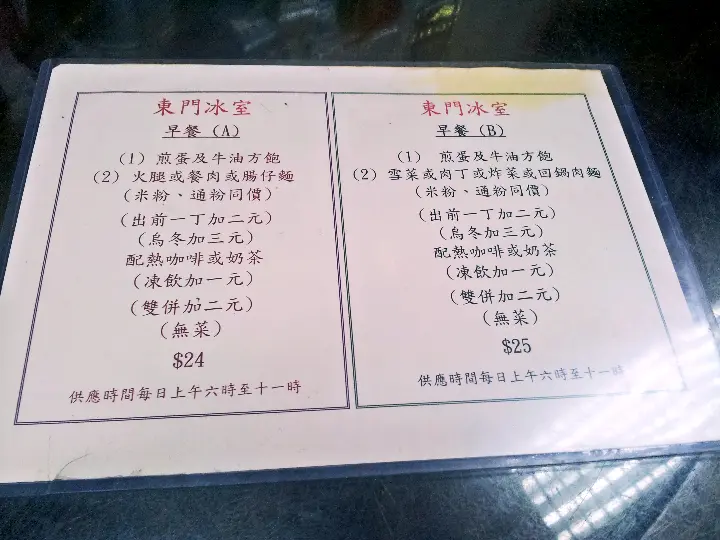 東門冰室
早餐 (A)
(1) 煎蛋及牛油方飽
(2) 火腿或餐肉或腸仔麵
(米粉、通粉同價)
(出前一丁加二元)
(烏冬加三元)
配熱咖啡或奶茶
(凍飲加一元)
(雙併加二元)
(無菜)
$24
供應時間每日上午六時至十一時
東門冰室
早餐 (B)
(1) 煎蛋及牛油方飽
(2) 雪菜或肉丁或炸菜或回鍋肉麵
(米粉、通粉同價)
(出前一丁加二元)
(烏冬加三元)
配熱咖啡或奶茶
(凍飲加一元)
(雙併加二元)
(無菜)
$25
供應時間每日上午六時至十一時